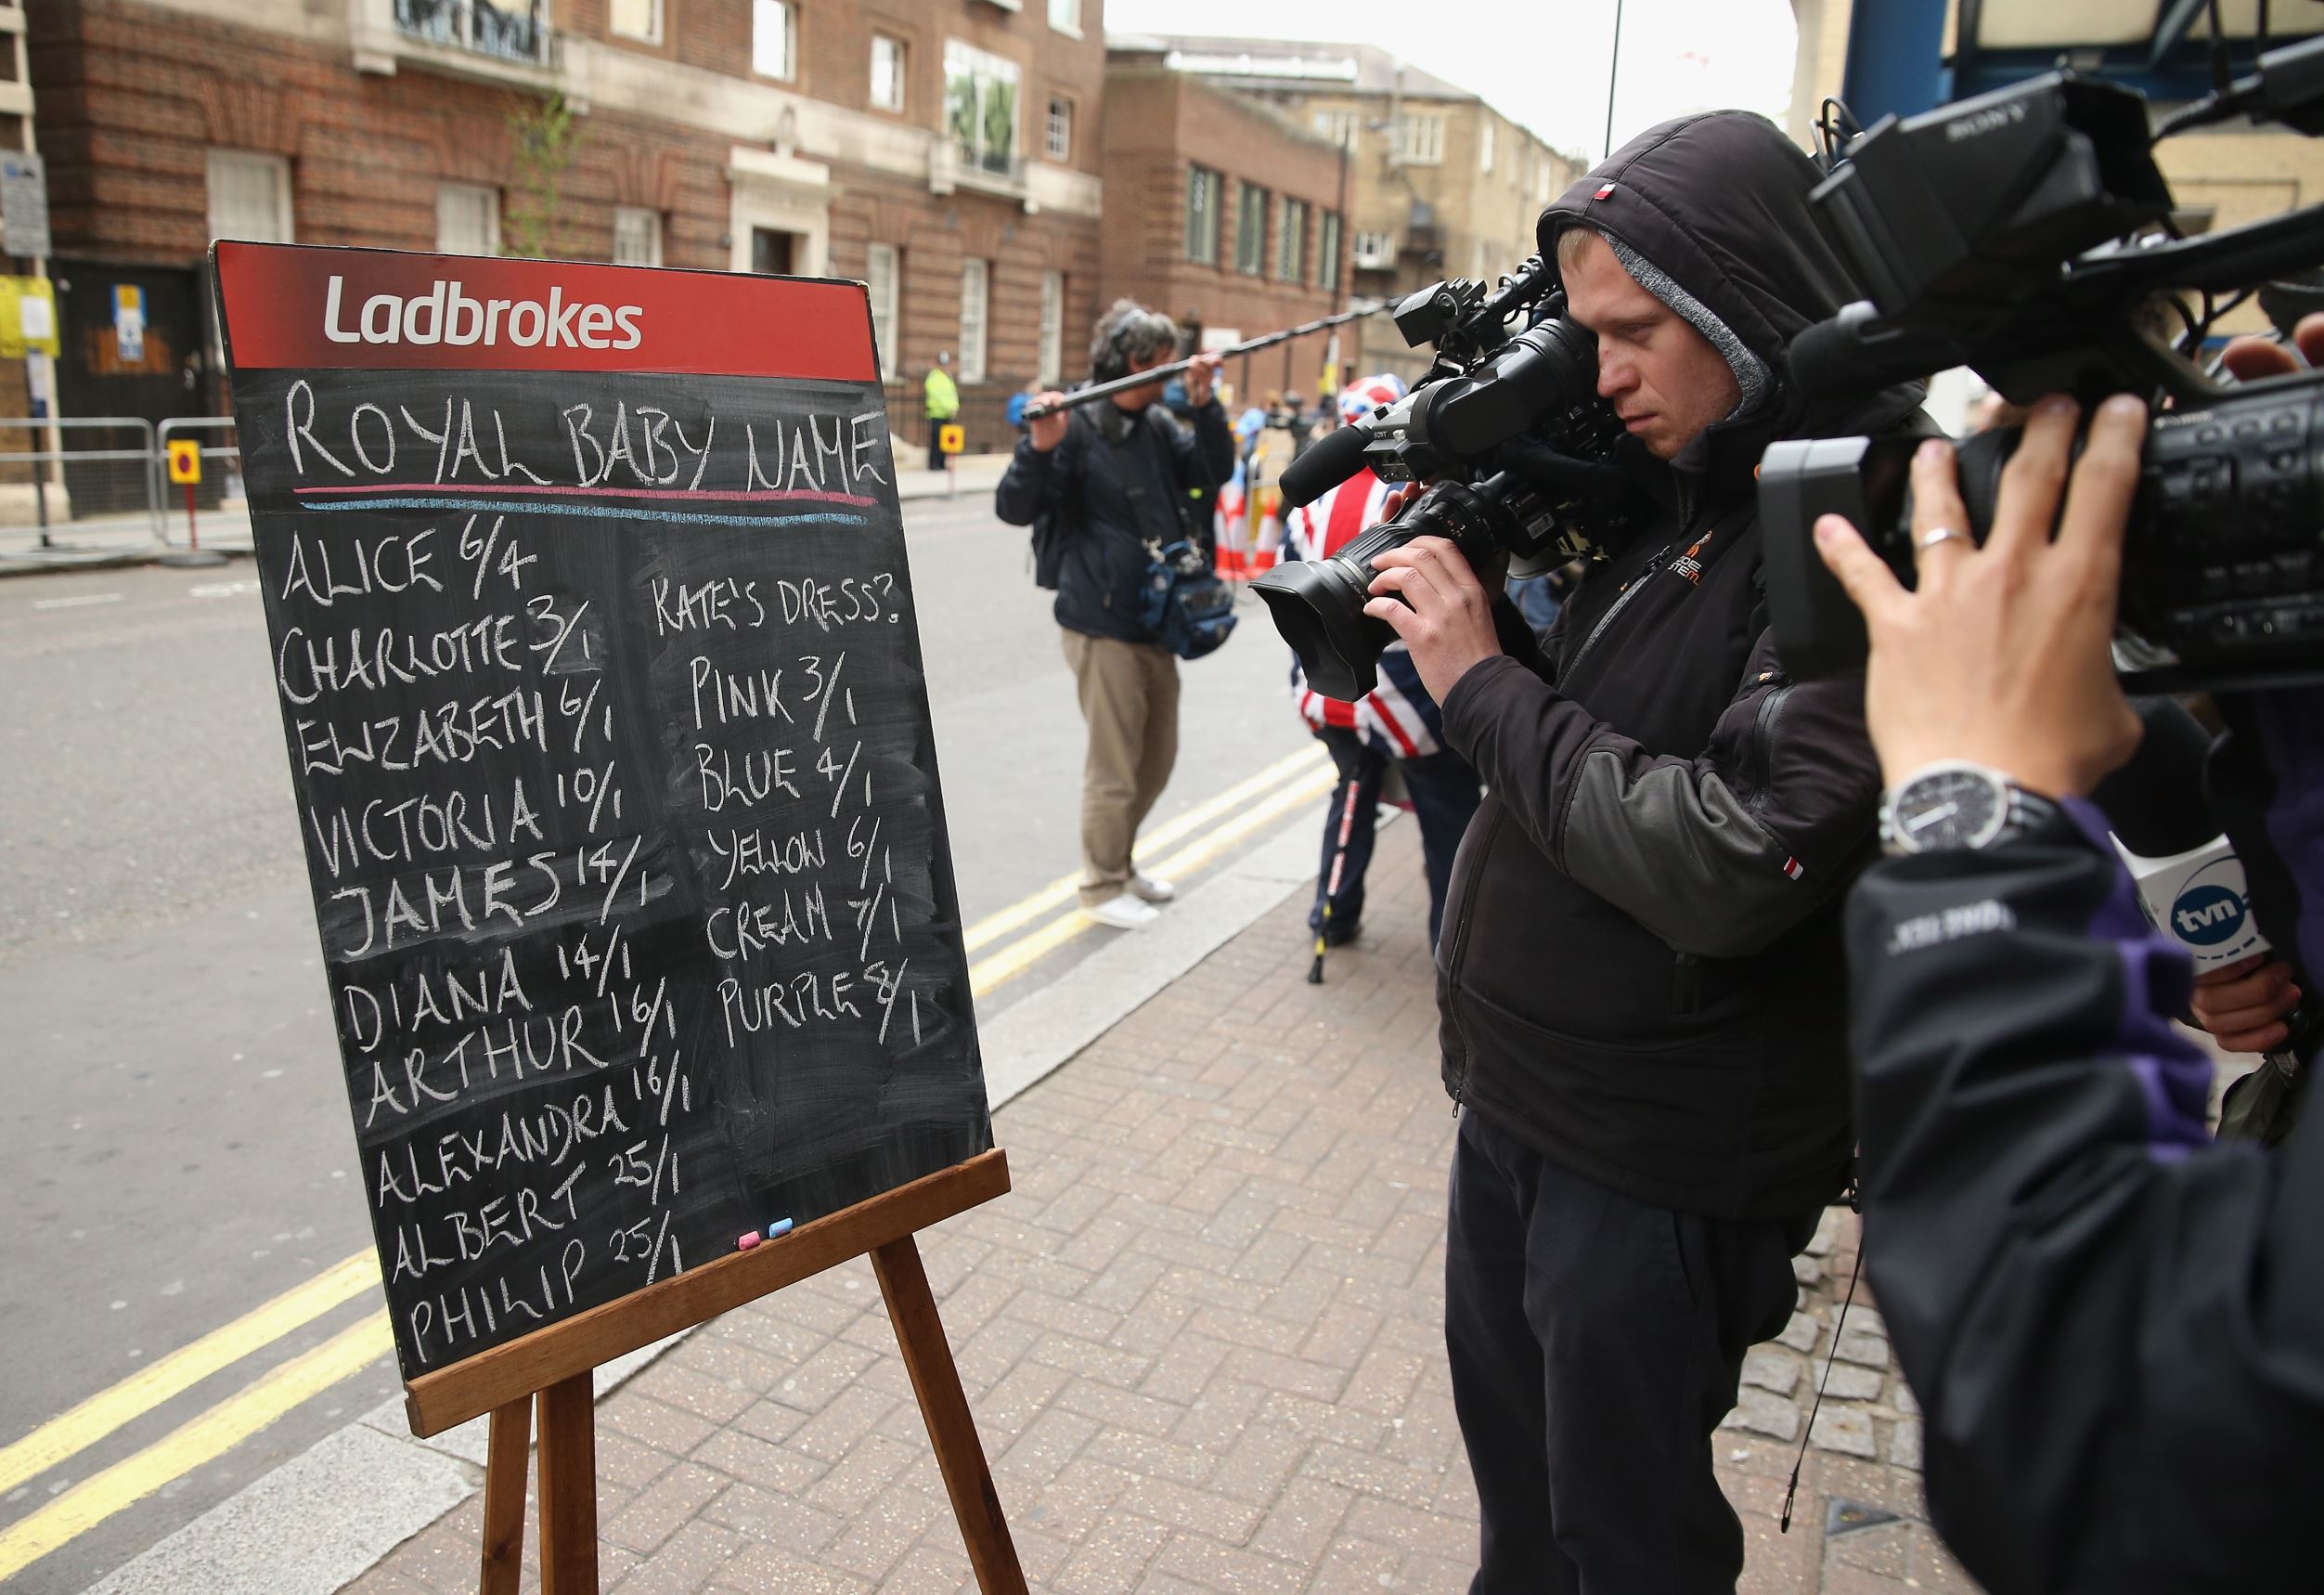 Ladbrokes
ROYAL BABY NAME
ALICE 6/4
CHARLOTTE 3/1
ELIZABETH 6/1
VICTORIA 10/1
JAMES 14/1
DIANA 14/1
ARTHUR 16/1
ALEXANDRA 16/1
ALBERT 25/1
PHILIP 25/1
KATE'S DRESS?
PINK 3/1
BLUE 4/1
YELLOW 6/1
CREAM 7/1
PURPLE 8/1
SONY
SONY
tvn